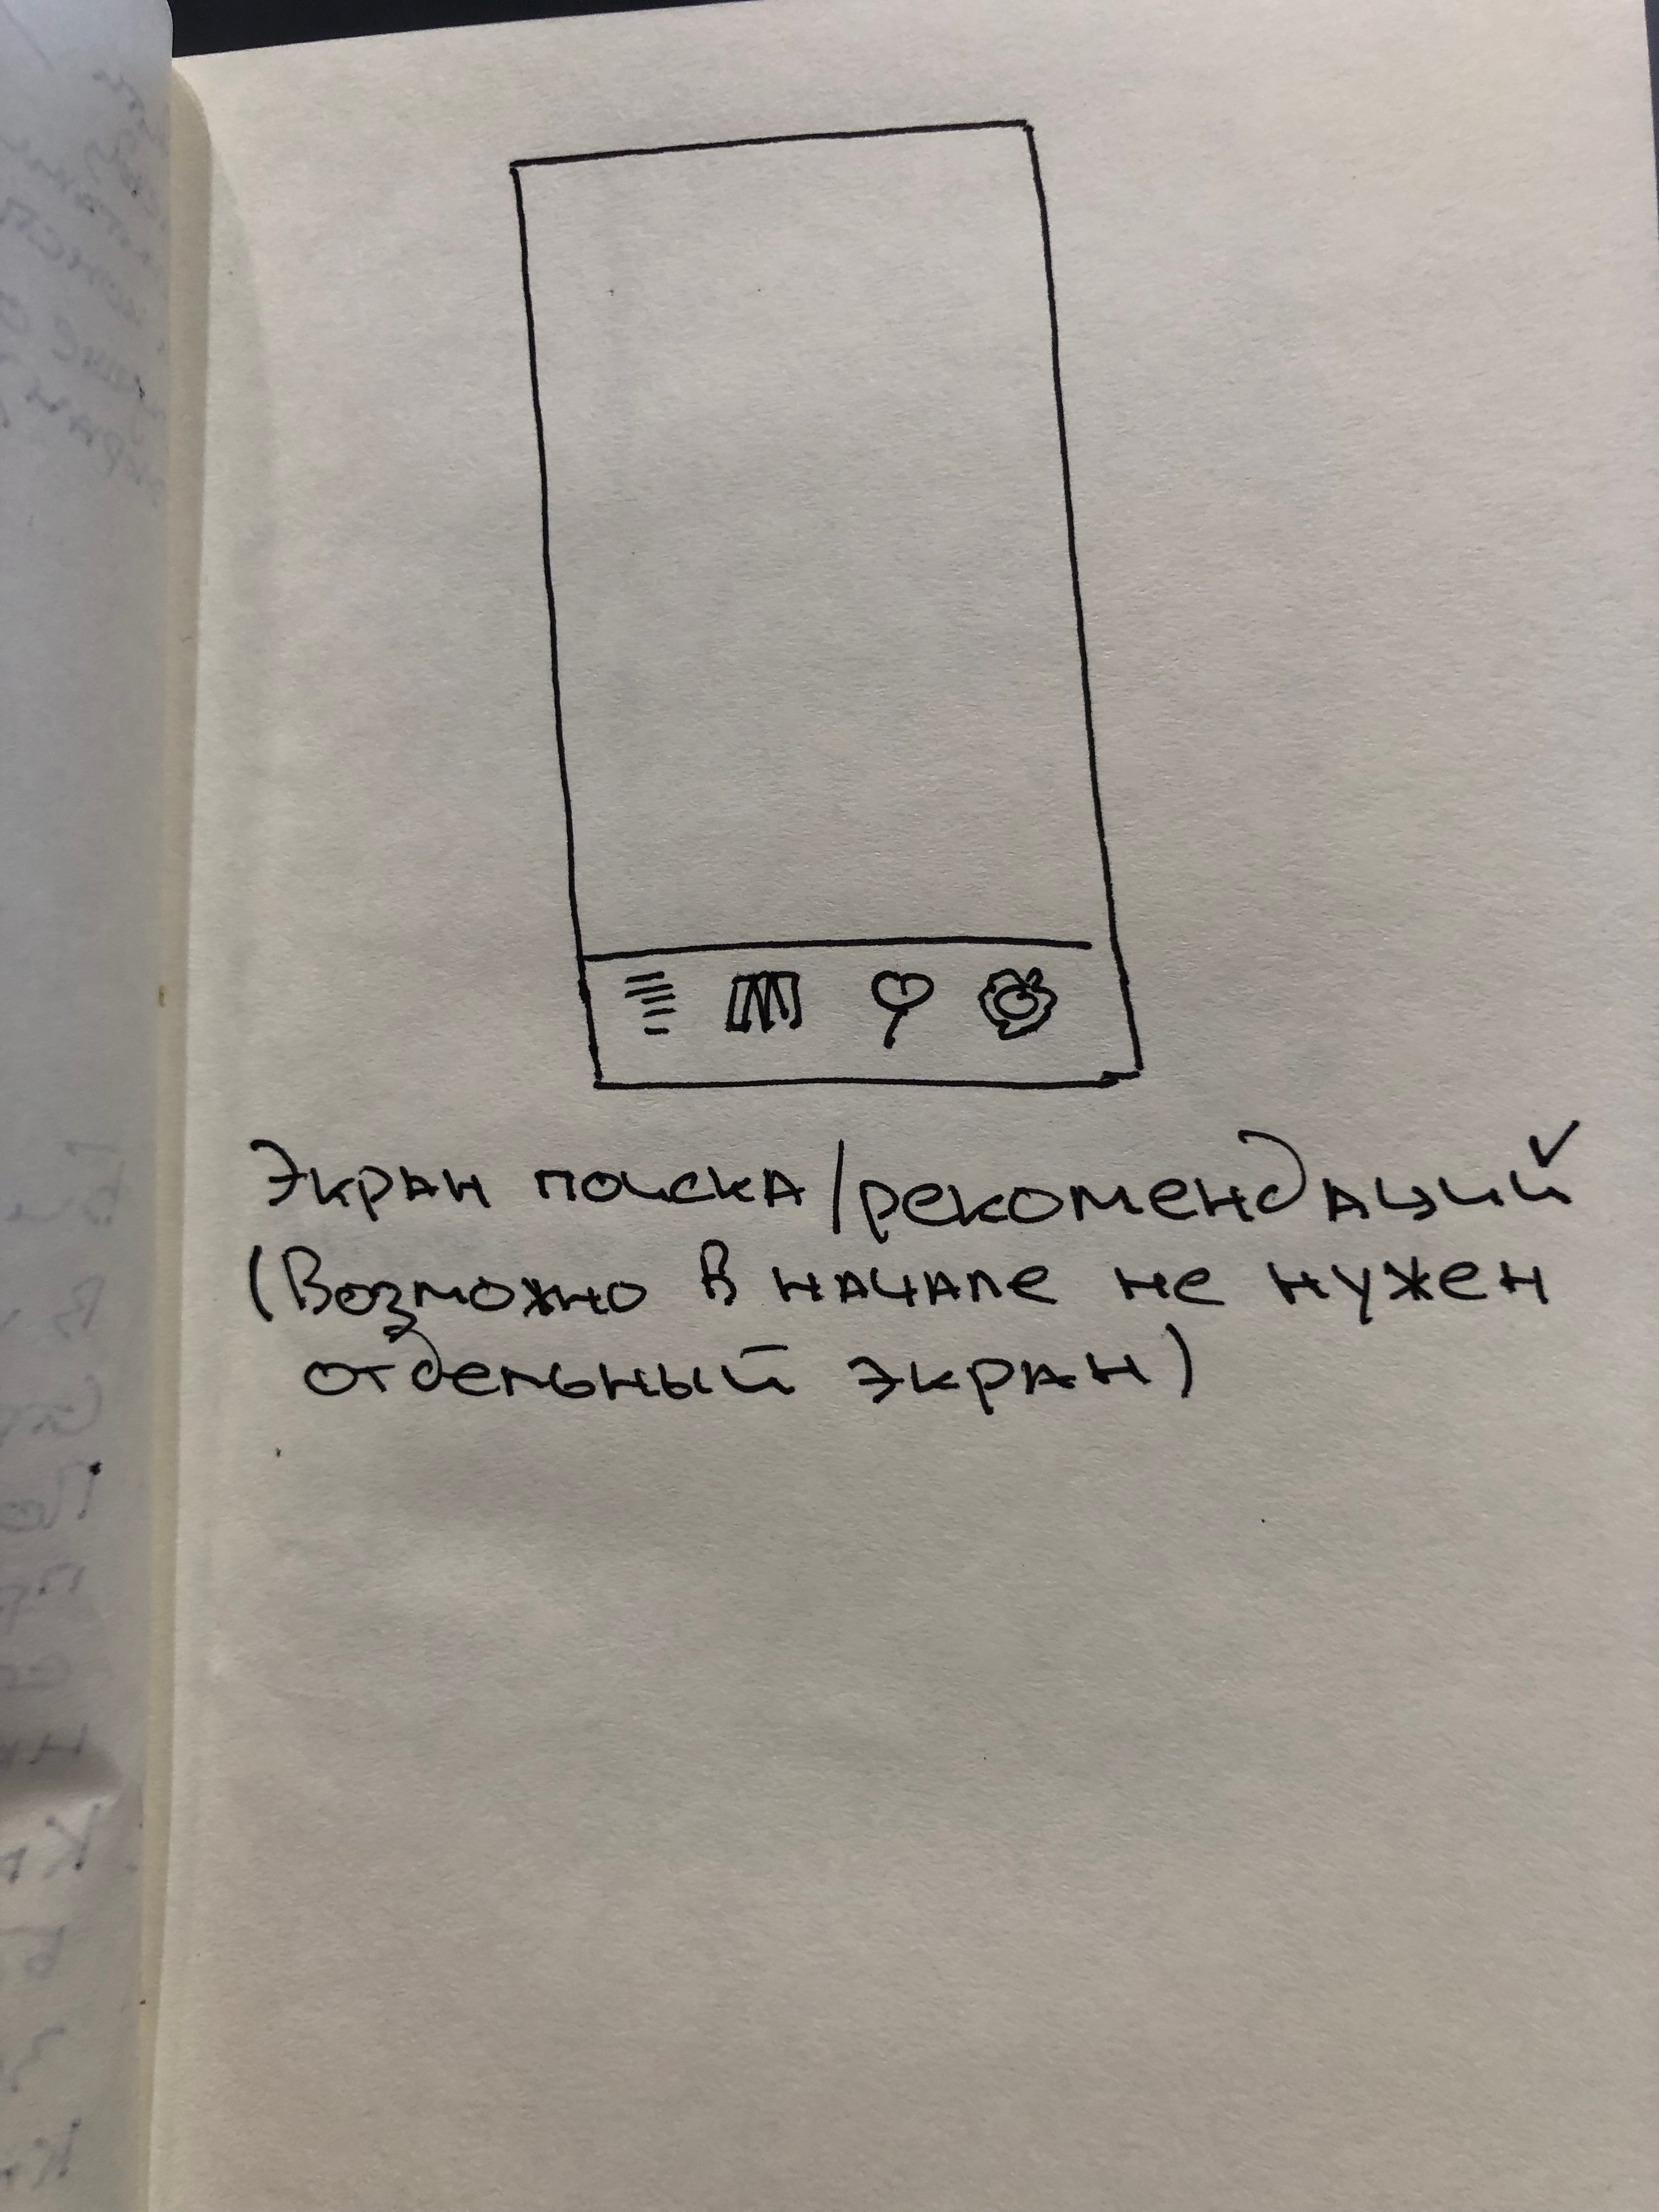 Экран поиска/рекомендаций
(Возможно в начале не нужен
отдельный экран)